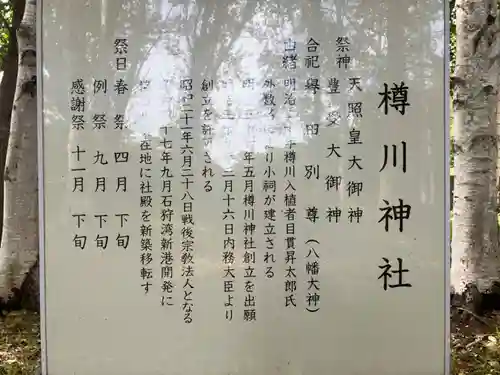 樽川神社
祭神 天照皇大御神
豊受大御神
合祀 誉田別尊（八幡大神）
由緒 明治 樽川入植者目貫昇太郎氏
外数 より小祠が建立される
年五月樽川神社創立を出願
二月十六日内務大臣より
創立を許 される
昭和二十一年六月二十八日戦後宗教法人となる
十七年九月石狩湾新港開発に
在地に社殿を新築移転す
祭日 春祭 四月 下旬
例祭 九月 下旬
感謝祭 十一月 下旬